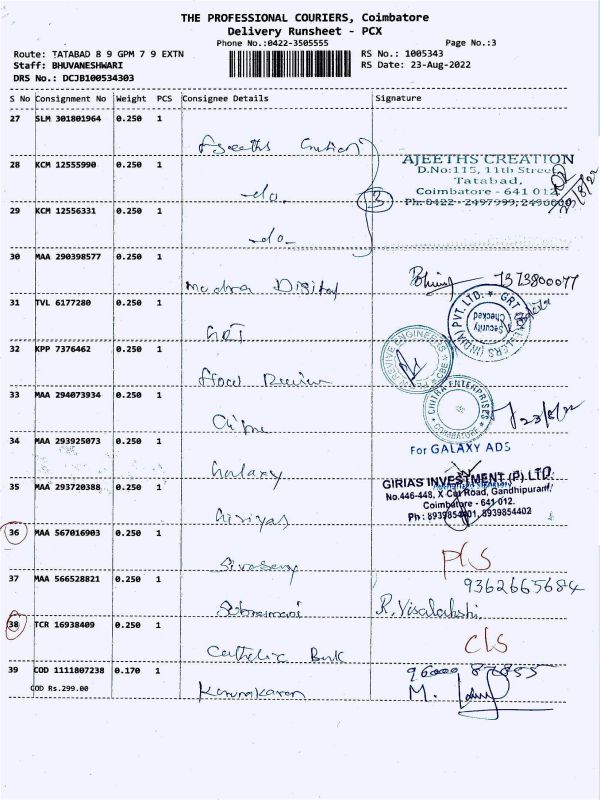 THE PROFESSIONAL COURIERS, Coimbatore
Delivery Runsheet - PCX
Phone No.:0422-3505555
Page No.:3
Route: TATABAD 8 9 GPM 7 9 EXTN
RS No.: 1005343
Staff: BHUVANESHWARI
RS Date: 23-Aug-2022
DRS No.: DCJB100534303
S No Consignment No Weight PCS Consignee Details Signature
27 SLM 301801964 0.250 1
Ajeeths Creation
28 KCM 12555990 0.250 1
-do-
AJEETHS CREATION
D.No:115, 11th Street,
Tatabad,
Coimbatore - 641 012
Ph: 0422 - 2497999, 2496000
23/8/22
3
29 KCM 12556331 0.250 1
-do-
30 MAA 290398577 0.250 1
Digital
7373800077
31 TVL 6177280 0.250 1
GRT
PVT. LTD. * GRT JEWELLERS (INDIA)
Security Checked
32 KPP 7376462 0.250 1
ENGINEERS
CBE
33 MAA 294073934 0.250 1
CHITRA ENTERPRISES
COIMBATORE
23/8/22
34 MAA 293925073 0.250 1
Galaxy
For GALAXY ADS
35 MAA 293720388 0.250 1
Giriyas
GIRIAS INVESTMENT (P) LTD.
No.446-448, X Cut Road, Gandhipuram,
Coimbatore - 641 012.
Ph : 8939854401, 8939854402
36 MAA 567016903 0.250 1
Sivasamy
PLS
37 MAA 566528821 0.250 1
9362665684
R. Visalakshi
38 TCR 16938409 0.250 1
Catholic Bank
CLS
39 COD 1111807238 0.170 1
COD Rs.299.00
Karunakaran
M.